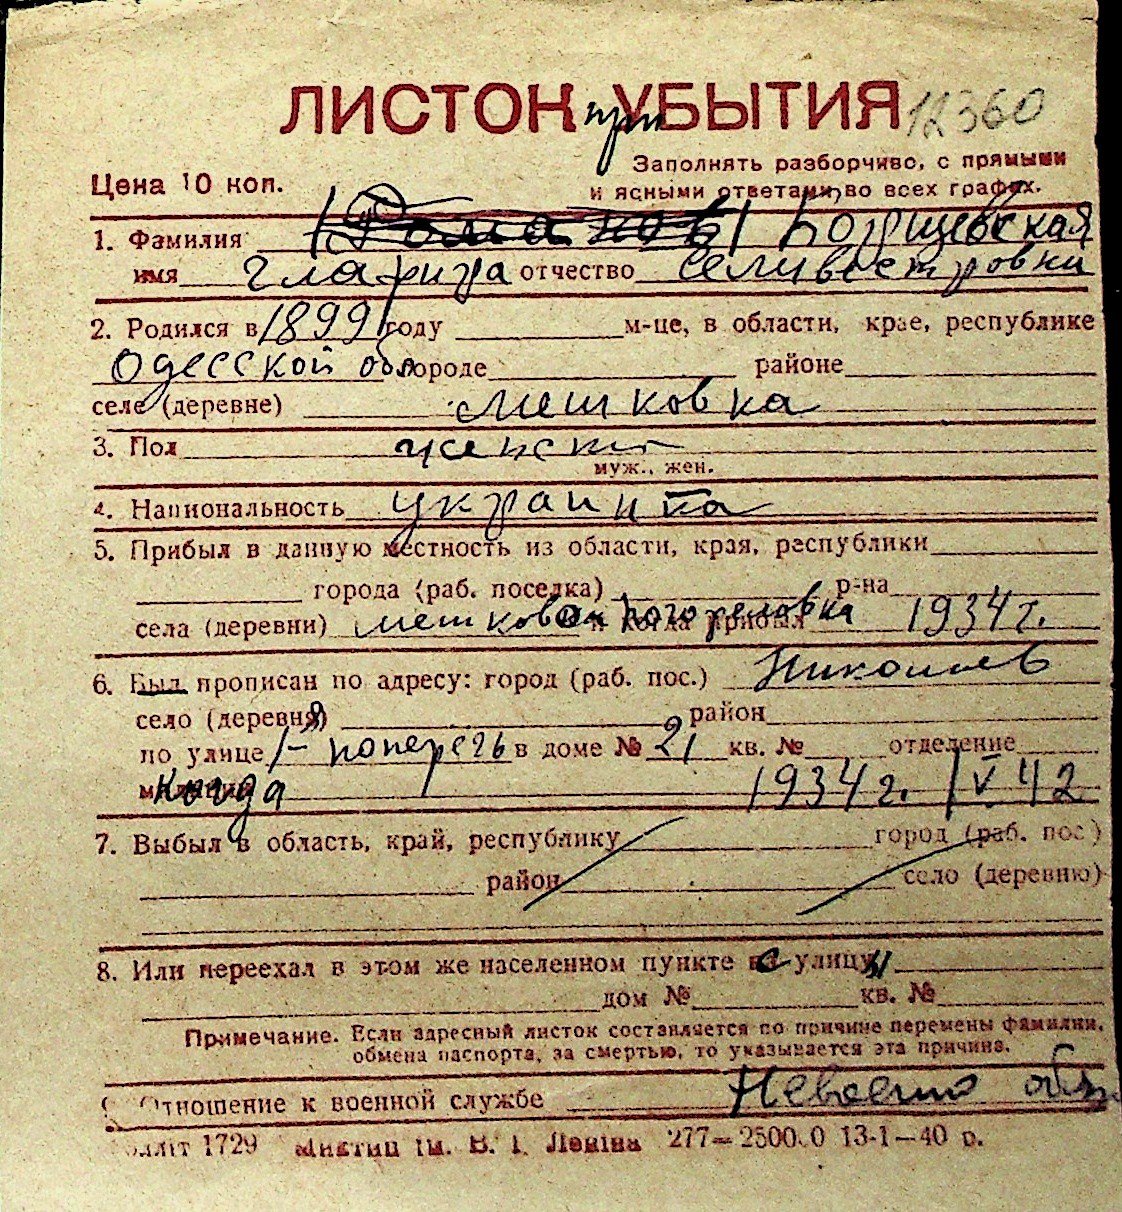 ЛИСТОК при УБЫТИЯ 12360
Заполнять разборчиво, с прямыми
Цена 10 коп. и ясными ответами, во всех графах.
1. Фамилия Романов Борщевская
имя Глафира отчество Селивестровна
2. Родился в 1899 году м-це, в области, крае, республике
Одесской обл городе районе
селе (деревне) Мешковка
3. Пол женск
муж., жен.
4. Национальность украинка
5. Прибыл в данную местность из области, края, республики
города (раб. поселка) р-на
села (деревни) Мешково Погореловка и когда прибыл 1934 г.
6. Был прописан по адресу: город (раб. пос.) Николаев
село (деревня) район
по улице 1-я поперечь в доме № 21 кв. № отделение
милиции когда 1934 г. 1 V 42
7. Выбыл в область, край, республику город (раб. пос)
район село (деревню)
8. Или переехал в этом же населенном пункте с улицы
дом № кв. №
Примечание. Если адресный листок составляется по причине перемены фамилии,
обмена паспорта, за смертью, то указывается эта причина.
Отношение к военной службе Невоенно обяз
1729 ім. В. І. Леніна 277—2500.0 13-1—40 р.